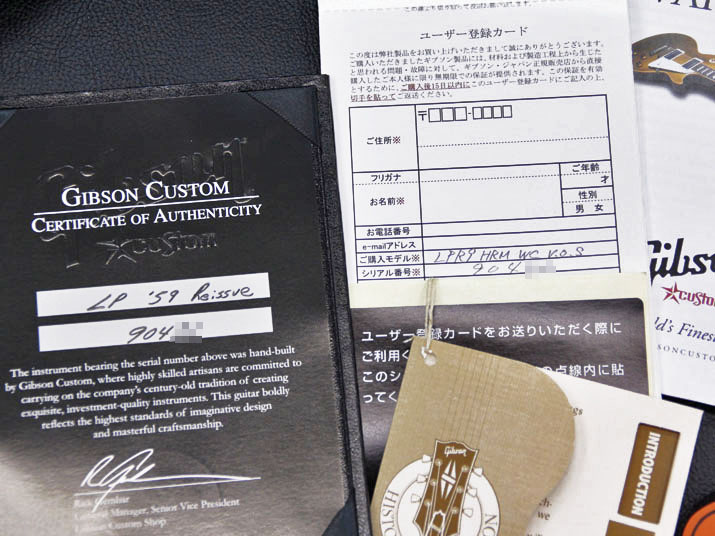 GIBSON CUSTOM
CERTIFICATE OF AUTHENTICITY
custom
LP '59 Reissue
904
The instrument bearing the serial number above was hand-built
by Gibson Custom, where highly skilled artisans are committed to
carrying on the company's century-old tradition of creating
exquisite, investment-quality instruments. This guitar boldly
reflects the highest standards of imaginative design
and masterful craftsmanship.
General Manager, Senior Vice President
Custom Shop
ユーザー登録カード
この度は弊社製品をお買い上げいただきまして誠にありがとうございます。
ご購入いただきましたギブソン製品には、材料および製造工程上から生じた
と思われる問題・故障に対して、ギブソン・ジャパン正規販売店から直接
購入したご本人様に限り無期限での保証が提供されます。この保証を有効
とするために、ご購入後15日以内にこのユーザー登録カードにご記入の上、
切手を貼ってご返送ください。
〒 -
ご住所※
フリガナ
ご年齢
才
お名前※
性別
男 女
お電話番号
e-mailアドレス
ご購入モデル※ LPR9 HRM WC V.O.S
シリアル番号※ 904
ユーザー登録カードをお送りいただく際に
ご利用く
このシ
の点線内に貼
ってく
Gibson
HISTO
INTRODUCTION
we
Gibs
custom
ld's Finest
SONCUSTOM